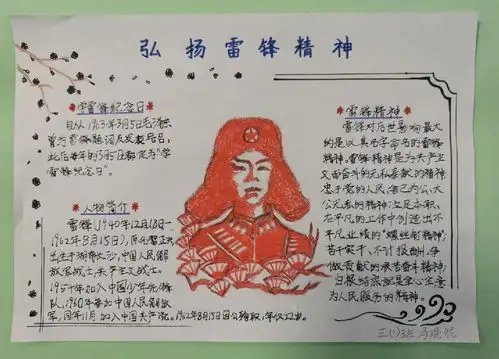 弘扬雷锋精神
学雷锋纪念日
自从1963年3月5日毛泽东
曾为雷锋题词发表后,
此后每年的3月5日都定为“学
雷锋纪念日”。
人物简介
雷锋(1940年12月18日—
1962年8月15日),原名雷正兴
出生于湖南长沙,中国人民解
放军战士,共产主义战士。
1954年加入中国少年先锋
队,1960年参加中国人民解放
军,同年11月加入中国共产党。1962年8月15日因公殉职,年仅22岁。
雷锋精神
雷锋对后世影响最大
的是以其名字命名的雷锋
精神。雷锋精神是为共产主
义而奋斗的无私奉献的精神;
忠于党的人民、舍己为公、大
公无私的精神;立足本职、
在平凡的工作中创造出不
平凡业绩的“螺丝钉精神”;
苦干实干、不计报酬、争
做贡献的艰苦奋斗精神;
归根结底就是全心全意
为人民服务的精神。
三(1)班